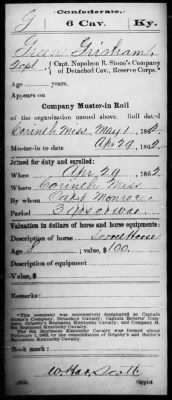 G Confederate.
6 Cav. Ky.
Green Grisham
Capt. Napoleon B. Stone's Company
of Detached Cav., Reserve Corps.*
Age years.
Appears on
Company Muster-in Roll
of the organization named above. Roll dated
Corinth Miss May 1, 1862.
Muster-in to date Apr 29, 1862
Joined for duty and enrolled:
When Apr 29, 1862.
Where Corinth Miss
By whom Capt Monroe
Period 3 yrs or war
Valuation in dollars of horse and horse equipments:
Description of horse Horse
Age Value, $ 100.
Description of equipment
Value, $
Remarks:
*This company was successively designated as Captain
Stone's Company, Detached Cavalry; Captain Roberts' Company,
Grigsby's Regiment Kentucky Cavalry; and Company
6th Regiment Kentucky Cavalry.
The 6th Regiment Kentucky Cavalry was formed about
February 1863, by the consolidation of Grigsby's and
Battalion Kentucky Cavalry.
Book mark:
Copyist.